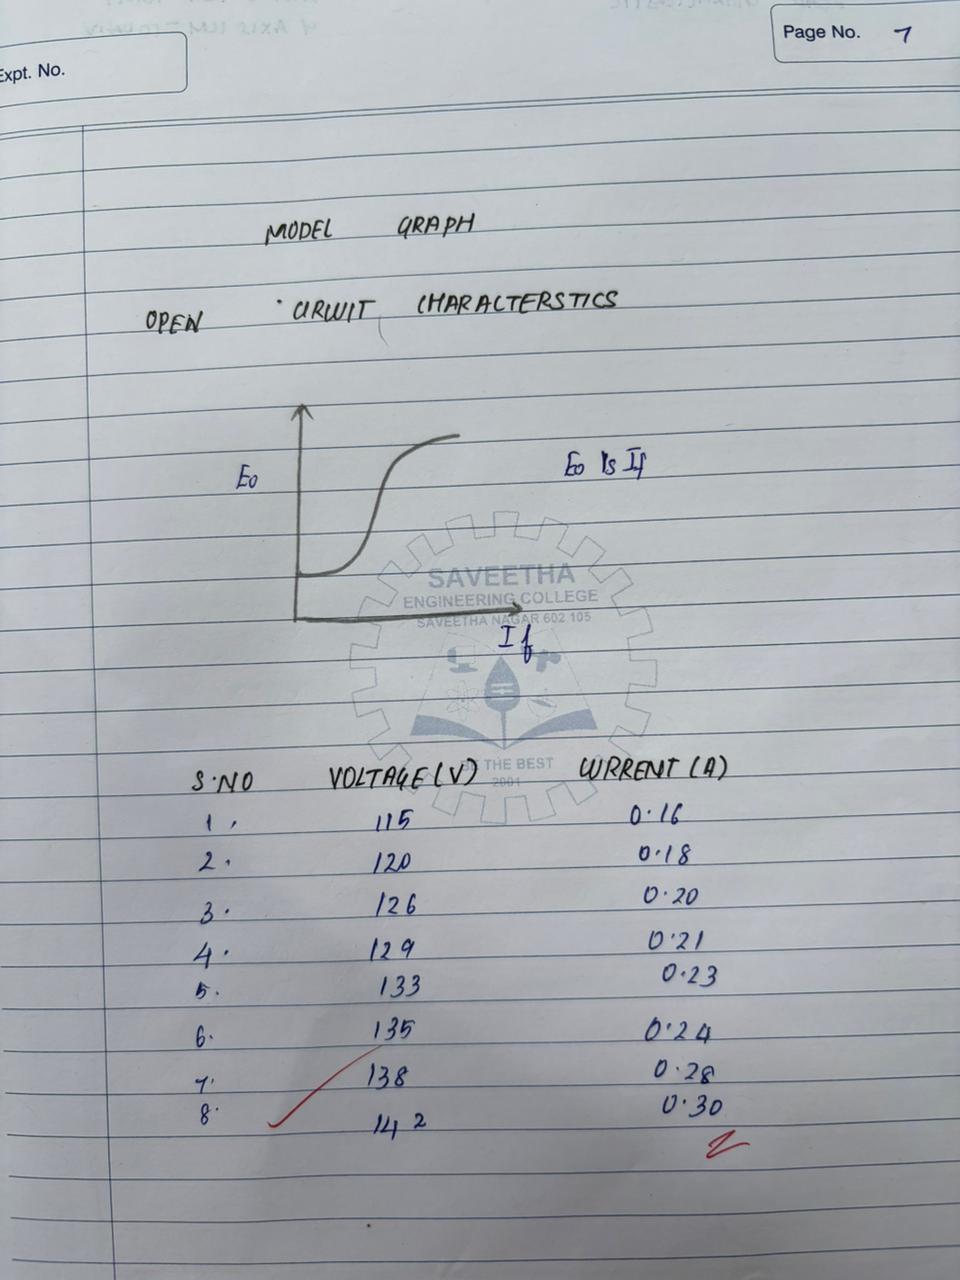 Expt. No.
Page No. 7
MODEL GRAPH
OPEN CIRCUIT CHARACTERSTICS
Eo
Eo Vs If
SAVEETHA
ENGINEERING COLLEGE
SAVEETHA NAGAR 602 105
If
BE THE BEST
2001
S.NO VOLTAGE (V) CURRENT (A)
1. 115 0.16
2. 120 0.18
3. 126 0.20
4. 129 0.21
5. 133 0.23
6. 135 0.24
7. 138 0.28
8. 142 0.30